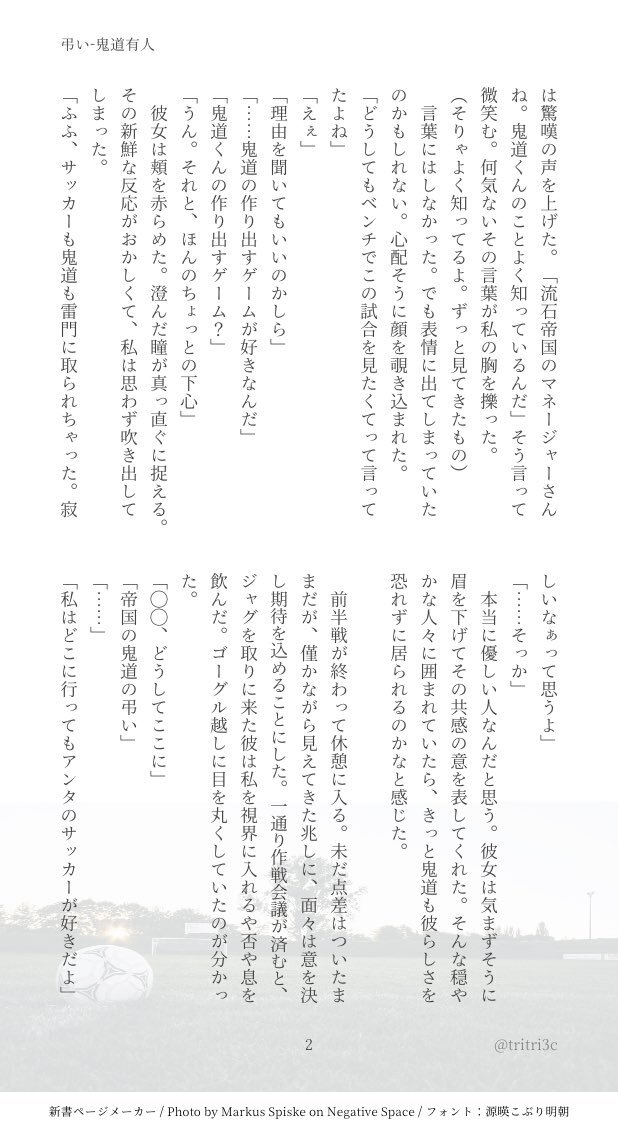 弔い-鬼道有人
は驚嘆の声を上げた。「流石帝国のマネージャーさん
ね。鬼道くんのことよく知っているんだ」そう言って
微笑む。何気ないその言葉が私の胸を擽った。
(そりゃよく知ってるよ。ずっと見てきたもの)
言葉にはしなかった。でも表情に出てしまっていた
のかもしれない。心配そうに顔を覗き込まれた。
「どうしてもベンチでこの試合を見たくてって言って
たよね」
「えぇ」
「理由を聞いてもいいのかしら」
「……鬼道の作り出すゲームが好きなんだ」
「鬼道くんの作り出すゲーム?」
「うん。それと、ほんのちょっとの下心」
彼女は頬を赤らめた。澄んだ瞳が真っ直ぐに捉える。
その新鮮な反応がおかしくて、私は思わず吹き出して
しまった。
「ふふ、サッカーも鬼道も雷門に取られちゃった。寂
しいなぁって思うよ」
「……そっか」
本当に優しい人なんだと思う。彼女は気まずそうに
眉を下げてその共感の意を表してくれた。そんな穏や
かな人々に囲まれていたら、きっと鬼道も彼らしさを
恐れずに居られるのかなと感じた。
前半戦が終わって休憩に入る。未だ点差はついたま
まだが、僅かながら見えてきた兆しに、面々は意を決
し期待を込めることにした。一通り作戦会議が済むと、
ジャグを取りに来た彼は私を視界に入れるや否や息を
飲んだ。ゴーグル越しに目を丸くしていたのが分かっ
た。
「〇〇、どうしてここに」
「帝国の鬼道の弔い」
「……」
「私はどこに行ってもアンタのサッカーが好きだよ」
2
@tritri3c
新書ページメーカー / Photo by Markus Spiske on Negative Space / フォント:源暎こぶり明朝